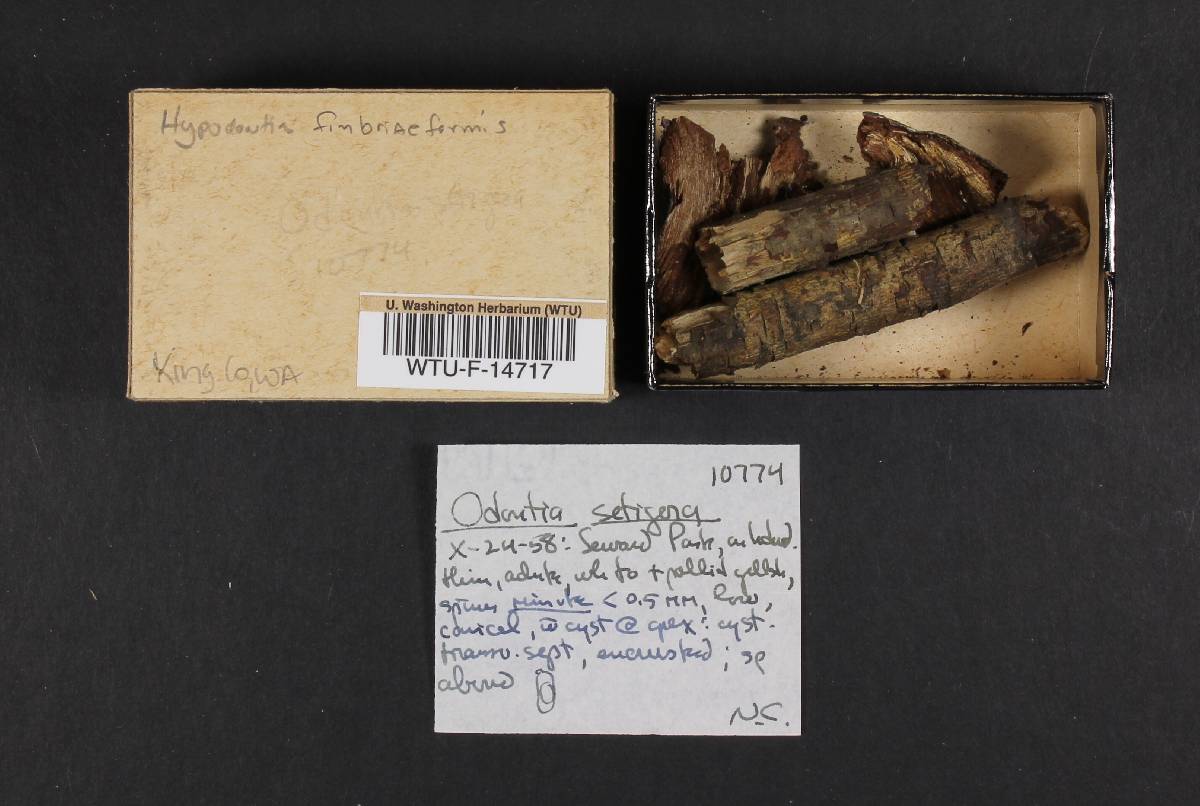 Hypodontia fimbriaeformis
Odontia setigera
10774
King Co, WA
U. Washington Herbarium (WTU)
WTU-F-14717
10774
Odontia setigera
X-24-58: Seward Park, on hdwd.
thin, adnate, white + pallid yellsh,
spines minute < 0.5 MM, low,
conical, w cyst @ apex: cyst.
transv. sept, encrusted; sp
abund
N.C.